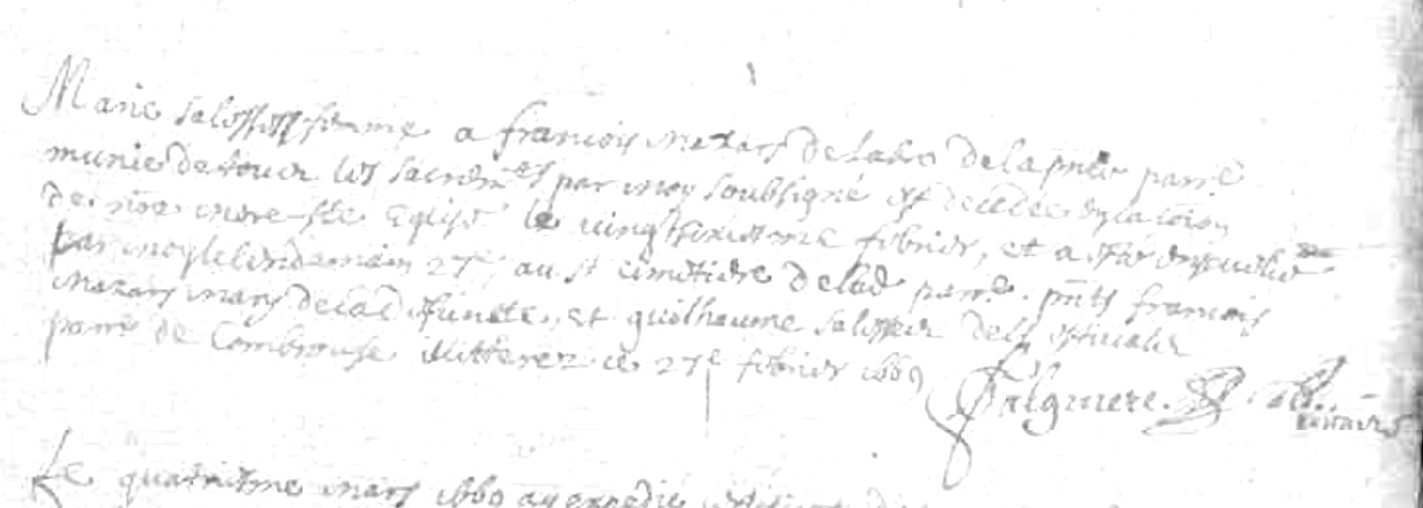 Marie femme a francois mazars de la pnte parre
munie de tous les sacremts par moy soubsigné est decedée en la coion
de nre mere ste Eglise le vingtsixieme febvrier, et a este ensevelie
par moy le lendemain 27e, au st cimetiere de lad parre. pnts francois
mazars mary de lad defuncte, et guilhaume
parre de Combrouse illitterez ce 27e febvrier 1669
falguiere. vicaire
Le quatriesme mars 1669 ay expedié